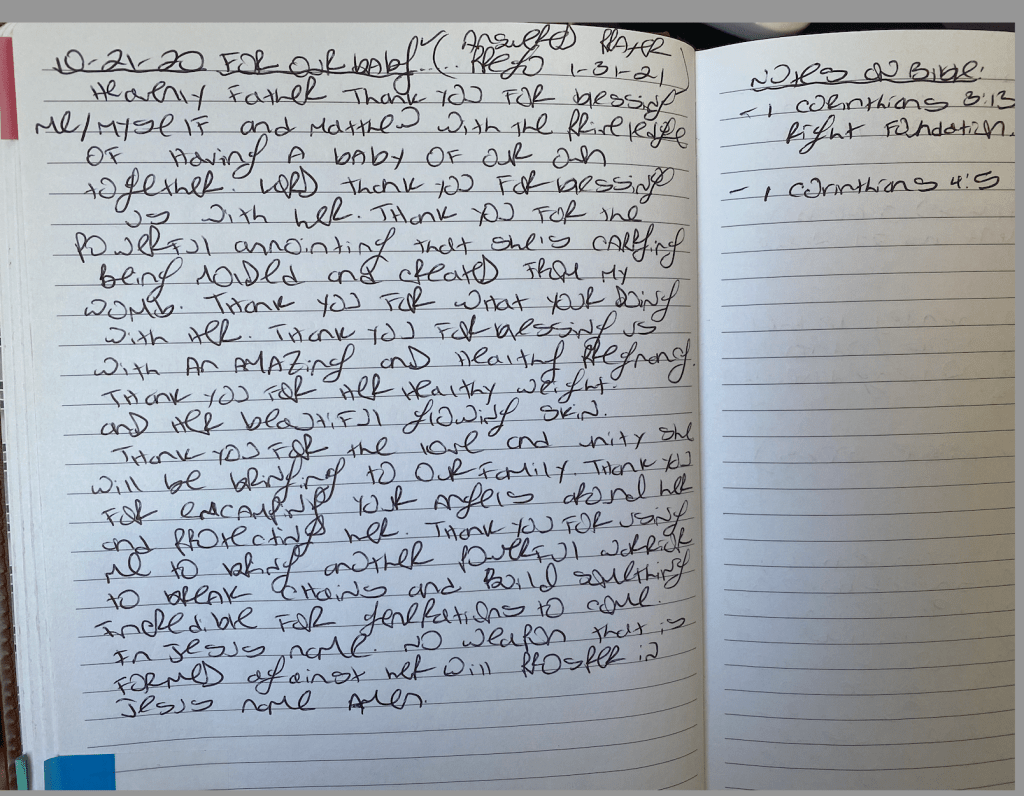 10-21-20 FOR OUR baby! (Answered PRAYER
Prego 1-31-21)
Heavenly Father Thank YOU FOR blessing
Me/Myself and Matthew with the Privelege
OF Having A baby OF our own
together. LORD thank YOU FOR blessing
us with her. THank YOU FOR the
POWERFUl annointing that she is CARRying
being molded and created FROM MY
WOMb. THank YOU FOR what YOUR DOing
with HER. THank YOU FOR blessing us
with An AMAZing anD Healthy Pregnancy.
THank YOU FOR HER Healthy weight.
anD HER beautiFUl glowing skin.
THank YOU FOR the love and unity she
will be bringing TO OUR FAMILY. THank YOU
FOR encamping YOUR Angels around her
and PROtecting her. THank YOU FOR using
me to bring another POWERFUl warrior
to break chains and Build something
Incredible FOR generations to come.
In Jesus name. NO weapon that is
FORMED against her will PROsper in
Jesus name Amen.
NOTES ON BIBLE:
- 1 corinthians 3:13
Right Foundation.
- 1 corinthians 4:5